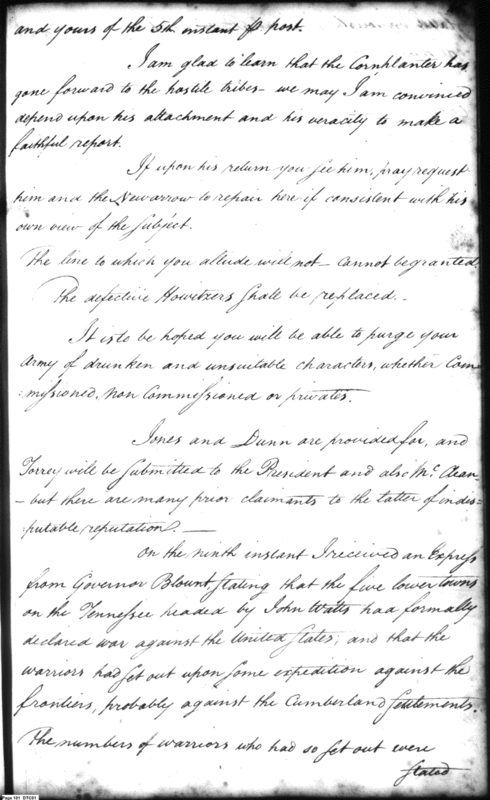 and yours of the 5th instant ⅌ post.
I am glad to learn that the Cornplanter has
gone forward to the hostile tribes – we may I am convinced
depend upon his attachment and his veracity to make a
faithful report.
If upon his return you see him, pray request
him and the New arrow to repair here if consistent with his
own view of the subject.
The line to which you allude will not – cannot be granted.
The defective Howitzers shall be replaced. –
It is to be hoped you will be able to purge your
Army of drunken and unsuitable characters, whether Com
:missioned, Non Commissioned or privates.
Jones and Dunn are provided for, and
Torrey will be submitted to the President and also Mc. Clean –
– but there are many prior claimants to the latter of indis-
putable reputation. —
On the ninth instant I received an Express
from Governor Blount stating that the five lower towns
on the Tennessee headed by John Watts had formally
declared war against the United States; and that the
warriors had set out upon some expedition against the
frontiers, probably against the Cumberland settlements.
The numbers of warriors who had so set out were
stated
Page 101 DTC01